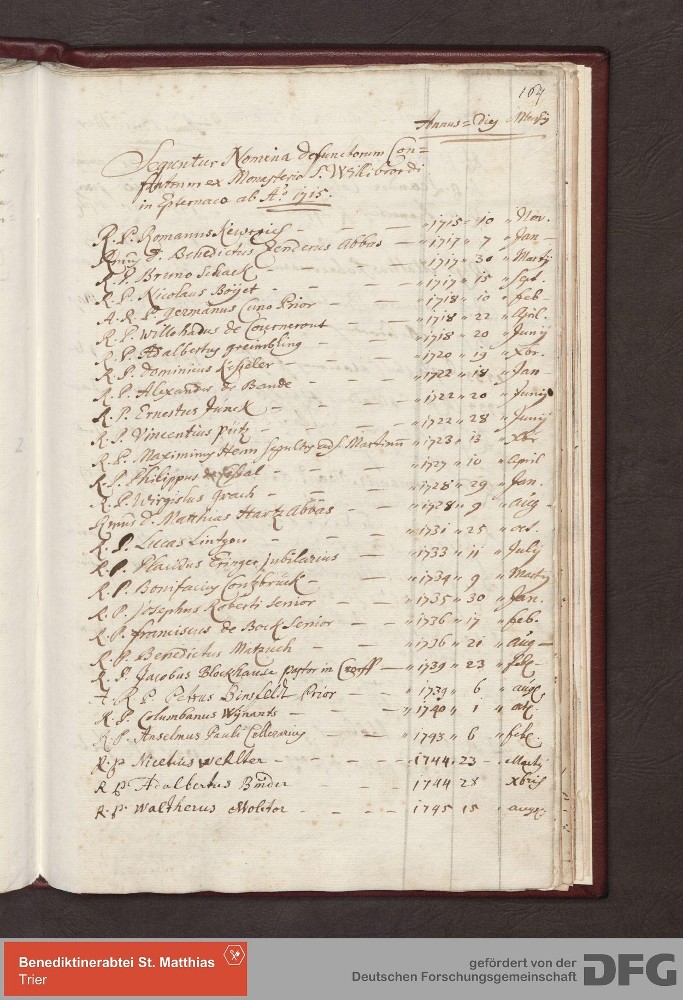 169
Annus = Dies Mensis
Sequntur Nomina defunctorum Con=
fratrum ex Monasterio S. Willibrordi
in Epternaco ab A.o 1715.
R. P. Romanus — — „ 1715 „ 10 „ Nov.
Rmus D. Benedictus Zenderus Abbas — „ 1717 „ 7 „ Jan —
R. P. Bruno Schack — — — „ 1717 „ 30 „ Martij
R. P. Nicolaus Boyet — — — „ 1717 „ 15 „ Sept.
A. R. P. Germanus Cuno Prior — — „ 1718 „ 10 „ feb —
R. P. Willohadus de — — „ 1718 „ 22 „ April.
R. P. Adalbertus greimbling — — „ 1718 „ 20 „ Junij
R. P. Dominicus Keßeler — — „ 1720 „ 19 „ Xbr.
R. P. Alexander de Bande — — „ 1722 „ 18 „ Jan —
R. P. Ernestus Junck — — — „ 1722 „ 20 „ Junij
R. P. Vincentius pütz — — — „ 1722 „ 28 „ Junij
R. P. Maximinus Henn Sepultus ad S. Martinum „ 1723 „ 13 „ Xbr
R. P. Philippus — — „ 1727 „ 10 „ April
R. P. Wirgilus Grach — — — „ 1728 „ 29 „ Jan.
Rmus D. Matthias Hartz Abbas — — „ 1728 „ 9 „ aug —
R. P. Lucas — — — „ 1731 „ 25 „ oct.
R. P. Placidus Eringer Jubilarius — — „ 1733 „ 11 „ Julij
R. P. Bonifacius Contzbrück — — — „ 1734 „ 9 „ Martij
R. P. Josephus Roberti Senior — — „ 1735 „ 30 „ Jan.
R. P. franciscus de Bock Senior — — „ 1736 „ 17 „ feb.
R. P. Benedictus Matzuch — — — „ 1736 „ 21 „ aug —
R. P. Jacobus Blockhause pastor in — „ 1739 „ 23 „ feb —
A. R. P. Petrus Binsfeldt Prior — — „ 1739 „ 6 „ aug.
R. P. Columbanus Wijnants — — — „ 1740 „ 1 „ oct.
R. P. Anselmus Pauli Cellerarius — — „ 1743 „ 6 „ feb.
R. P. Nicetius Wehlter — — — 1744 „ 23 — Martij
R P Adalbertus Binder — — — 1744 28 xbris
R. P. Waltherus Molitor — — — 1745 15 aug.
Benediktinerabtei St. Matthias
Trier
gefördert von der
Deutschen Forschungsgemeinschaft
DFG